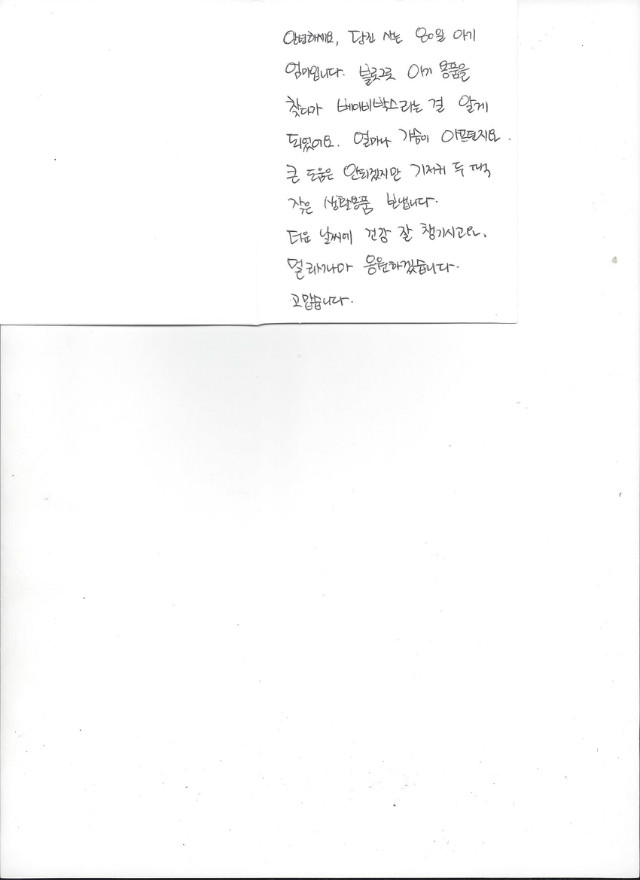 안녕하세요, 당진 사는 80일 아기
엄마입니다. 블로그로 아기 용품을
찾다가 베이비박스라는 걸 알게
되었어요. 얼마나 가슴이 아프던지요.
큰 도움은 안되겠지만 기저귀 두 팩
작은 생활용품 보냅니다.
더운 날씨에 건강 잘 챙기시고요.
멀리서나마 응원하겠습니다.
고맙습니다.